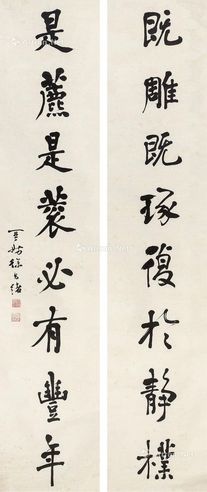 既雕既琢復於静樸
是藨是蓘必有豐年